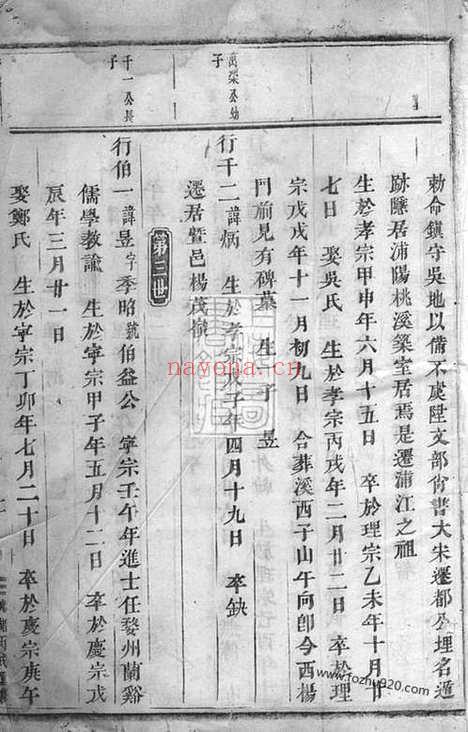 勅命鎮守吳地以備不虞陞文部尙書大宋遷都公埋名遁
跡隱居浦陽桃溪築室居焉是遷浦江之祖
生於孝宗甲申年六月十五日 卒於理宗乙未年十月廿
七日 娶吳氏 生於孝宗丙戌年二月廿二日 卒於理
宗戊戌年十一月初九日 合葬溪西子山午向卽今西楊
門前見有碑墓 生一子 昱
萬榮公幼
子
行千二諱炳 生於孝宗戊子年四月十九日 卒缺
遷居暨邑楊茂嶺
第三世
千一公長
子
行伯一諱昱字季昭號伯益公 寧宗壬午年進士任婺州蘭谿
儒學教諭 生於寧宗甲子年五月十二日 卒於慶宗戊
辰年三月廿一日
娶鄭氏 生於寧宗丁卯年七月二十日 卒於慶宗庚午
nayona.cn
www.fozhu920.com